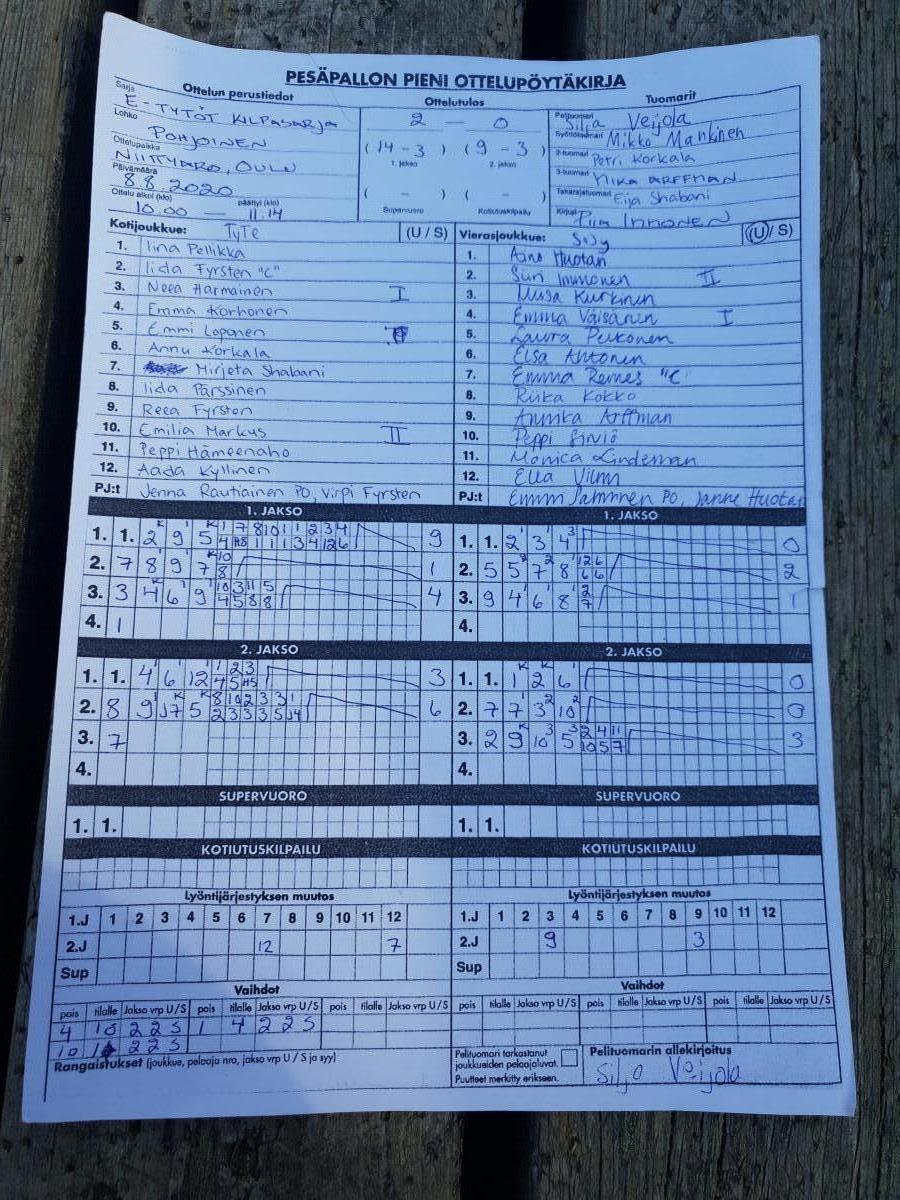 PESÄPALLON PIENI OTTELUPÖYTÄKIRJA
Ottelun perustiedot
Sarja
E-TYTÖT KILPASARJA
Lohko
POHJOINEN
Ottelupaikka
NIITTYARO, OULU
Päivämäärä
8.8.2020
Ottelu alkoi (klo) päättyi (klo)
10.00 — 11.14
Ottelutulos
2 — 0
(14 - 3) (9 - 3)
1. jakso 2. jakso
( - ) ( - )
Supervuoro Kotiutuskilpailu
Tuomarit
Pelituomari Silja Veijola
Syöttötuomari Mikko Mankinen
2-tuomari Petri Korkala
3-tuomari MIKA ARFFMAN
Takarajatuomari Eija Shabani
Kirjuri Piia INNONEN
Kotijoukkue: TyTe (U / S)
1. Iina Pellikka
2. Iida Fyrsten "C"
3. Neea Harmainen I
4. Emma Korhonen
5. Emmi Loponen
6. Annu Korkala
7. Mirjeta Shabani
8. Iida Pärssinen
9. Reea Fyrsten
10. Emilia Markus II
11. Peppi Hämeenaho
12. Aada Kyllinen
PJ:t Jenna Rautiainen PO, Virpi Fyrsten
Vierasjoukkue: SiJy (U / S)
1. Aino Huotari
2. Siiri Immonen II
3. Miisa Kurkinen
4. Emma Väisänen I
5. Laura Peikonen
6. Elsa Antonen
7. Emma Remes "C"
8. Riika Kokko
9. Annika Arffman
10. Peppi Sirviö
11. Monica Lindeman
12. Ella Vilmi
PJ:t PO, Janne Huotari
1. JAKSO
1. 1. 2 9 5 9
2. 7 8 9 7 1
3. 3 4 6 9 4
4. 1
1. JAKSO
1. 1. 2 3 4 0
2. 5 5 7 8 2
3. 9 4 6 8 1
4.
2. JAKSO
1. 1. 4 6 12 3
2. 8 9 5 6
3. 7
4.
2. JAKSO
1. 1. 1 2 6 0
2. 7 7 3 10 0
3. 2 9 10 5 3
4.
SUPERVUORO
1. 1.
SUPERVUORO
1. 1.
KOTIUTUSKILPAILU
KOTIUTUSKILPAILU
Lyöntijärjestyksen muutos
1.J 1 2 3 4 5 6 7 8 9 10 11 12
2.J 12 7
Sup
Lyöntijärjestyksen muutos
1.J 1 2 3 4 5 6 7 8 9 10 11 12
2.J 9 3
Sup
Vaihdot
pois tilalle Jakso vrp U/S pois tilalle Jakso vrp U/S pois tilalle Jakso vrp U/S
4 10 2 2 S 1 4 2 2 S
10 1 2 2 S
Vaihdot
pois tilalle Jakso vrp U/S pois tilalle Jakso vrp U/S pois tilalle Jakso vrp U/S
Rangaistukset (joukkue, pelaaja nro, jakso vrp U / S ja syy)
Pelituomari tarkastanut
joukkueiden pelaajaluvat.
Puutteet merkitty erikseen.
Pelituomarin allekirjoitus
Silja Veijola